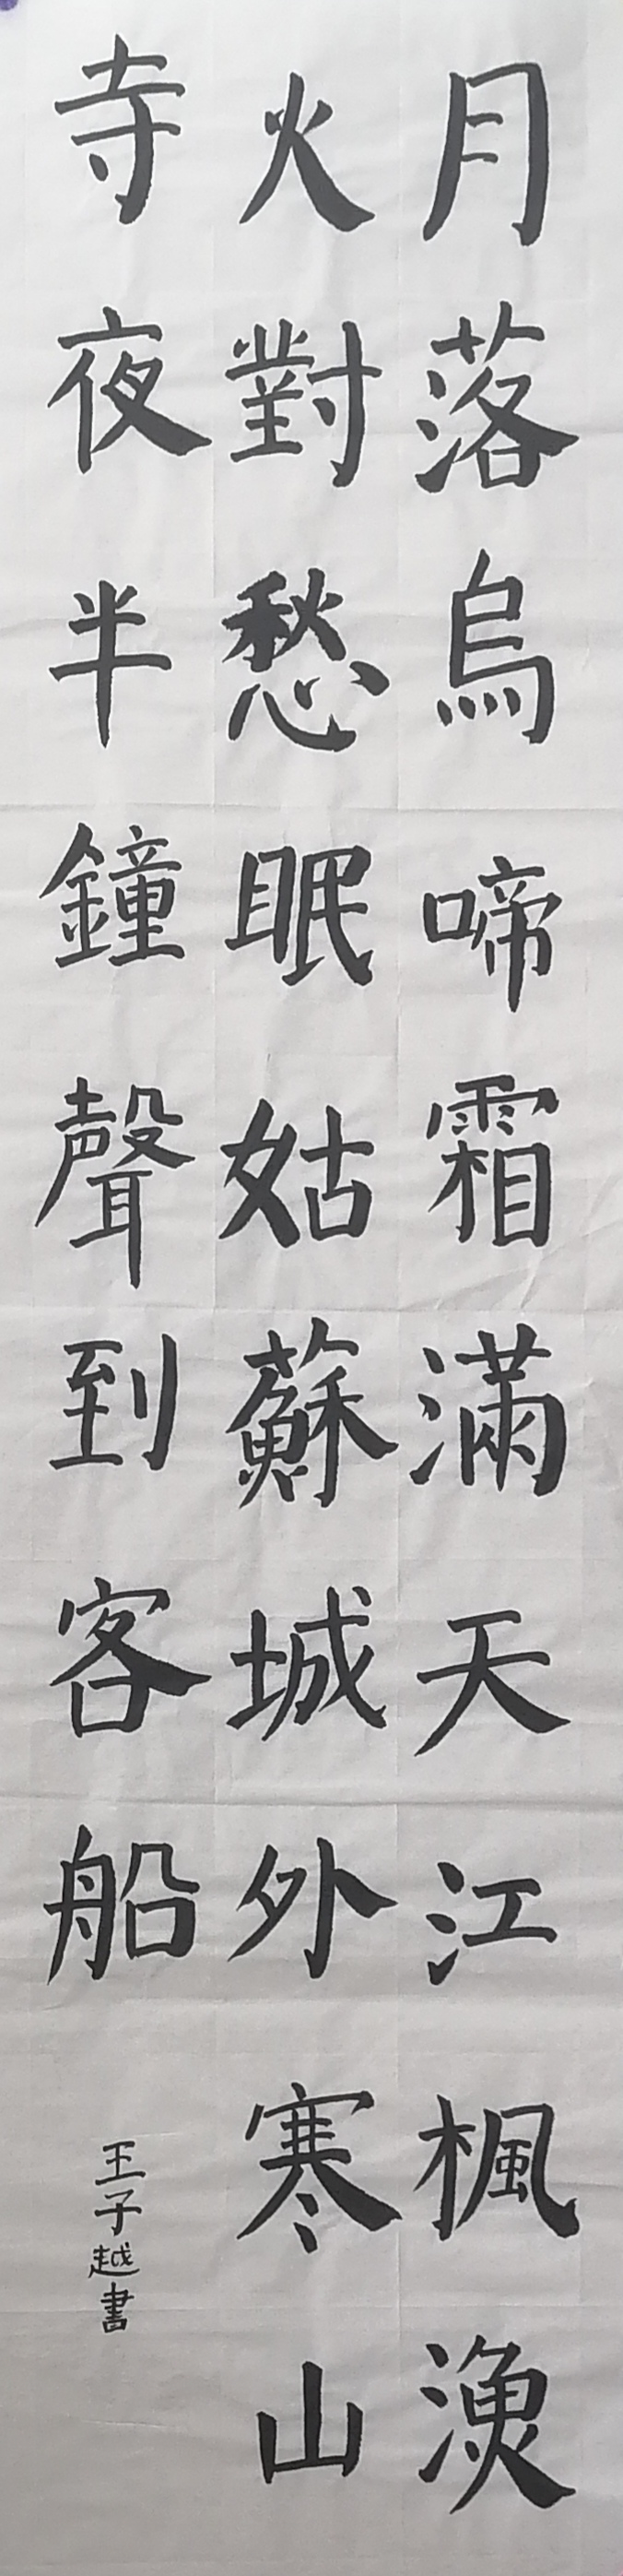 月落烏啼霜滿天江楓漁
火對愁眠姑蘇城外寒山
寺夜半鐘聲到客船
王子越書